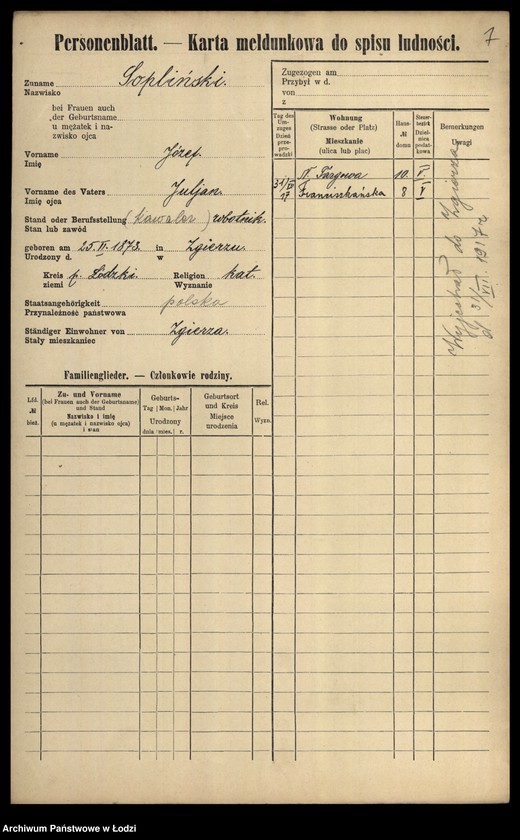 7
Personenblatt. — Karta meldunkowa do spisu ludności.
Zuname Sopliński.
Nazwisko
bei Frauen auch
der Geburtsname
u mężatek i na-
zwisko ojca
Vorname Józef.
Imię
Vorname des Vaters Juljan.
Imię ojca
Stand oder Berufsstellung (kawaler) robotnik.
Stan lub zawód
geboren am 25. II. 1873. in Zgierzu.
Urodzony d. w
Kreis p. Łódzki. Religion kat.
ziemi Wyznanie
Staatsangehörigkeit polska
Przynależność państwowa
Ständiger Einwohner von Zgierza.
Stały mieszkaniec
Familienglieder. — Członkowie rodziny.
Lfd. № bież.
Zu- und Vorname
(bei Frauen auch der Geburtsname)
und Stand
Nazwisko i imię
(u mężatek i nazwisko ojca)
i stan
Geburts-
Tag | Mon. | Jahr
Urodzony
dnia | mies. | r.
Geburtsort
und Kreis
Miejsce
urodzenia
Rel.
Wyzn.
Zugezogen am
Przybył w d.
von
z
Tag des
Um-
zuges
Dzień
prze-
prowadzki
Wohnung
(Strasse oder Platz)
Mieszkanie
(ulica lub plac)
Haus-
№
domu
Steuer-
bezirk
Dzielnica
podat-
kowa
Bemerkungen
Uwagi
Targowa 10. V
31/XII 17 Franciszkańska 8 V
Wypisprad do Zgierza
31/XII 1917 r.
Archiwum Państwowe w Łodzi